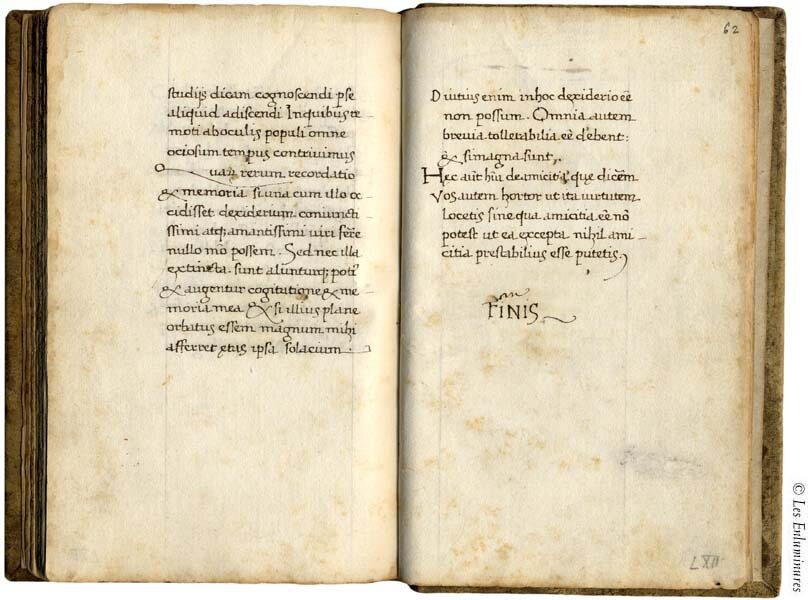 studijs dicam cognoscendi p̄se
aliquid adiscendi Inquibus re-
moti aboculis populi omne
ociosum tempus contrivimus
quarū rerum recordatio
& memoria si una cum illo oc-
cidisset dexiderium coniuncti
ssimi atq; amantissimi viri ferre
nullo mō possem. Sed nec illa
extincta sunt alunturq; poti⁹
& augentur cogitatione & me-
moria mea & si illius plane
orbatus essem magnum mihi
afferret ętas ipsa solacium
62
Diutius enim inhoc dexiderio eē
non possum. Omnia autem
brevia tollerabilia eē debent:
& si magna sunt.
Hec aut̄ hui de amicitia quę dicēm
Vos autem hortor ut ita virtutem
locetis sine qua amicitia eē nō
potest ut ea excepta nihil ami-
citia prestabilius esse putetis
FINIS
LXII
© Les Enluminures